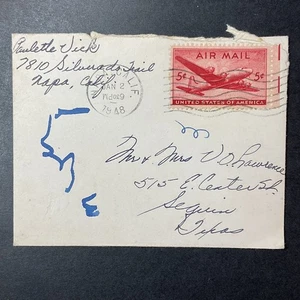 Paulette Vick
7810 Silverado Trail
Napa, Calif.
CALIF.
JAN 2
1948
AIR MAIL
5¢ 5¢
UNITED STATES OF AMERICA
Mr & Mrs V O Lawrence
515 E. Center St.
Seguin
Texas